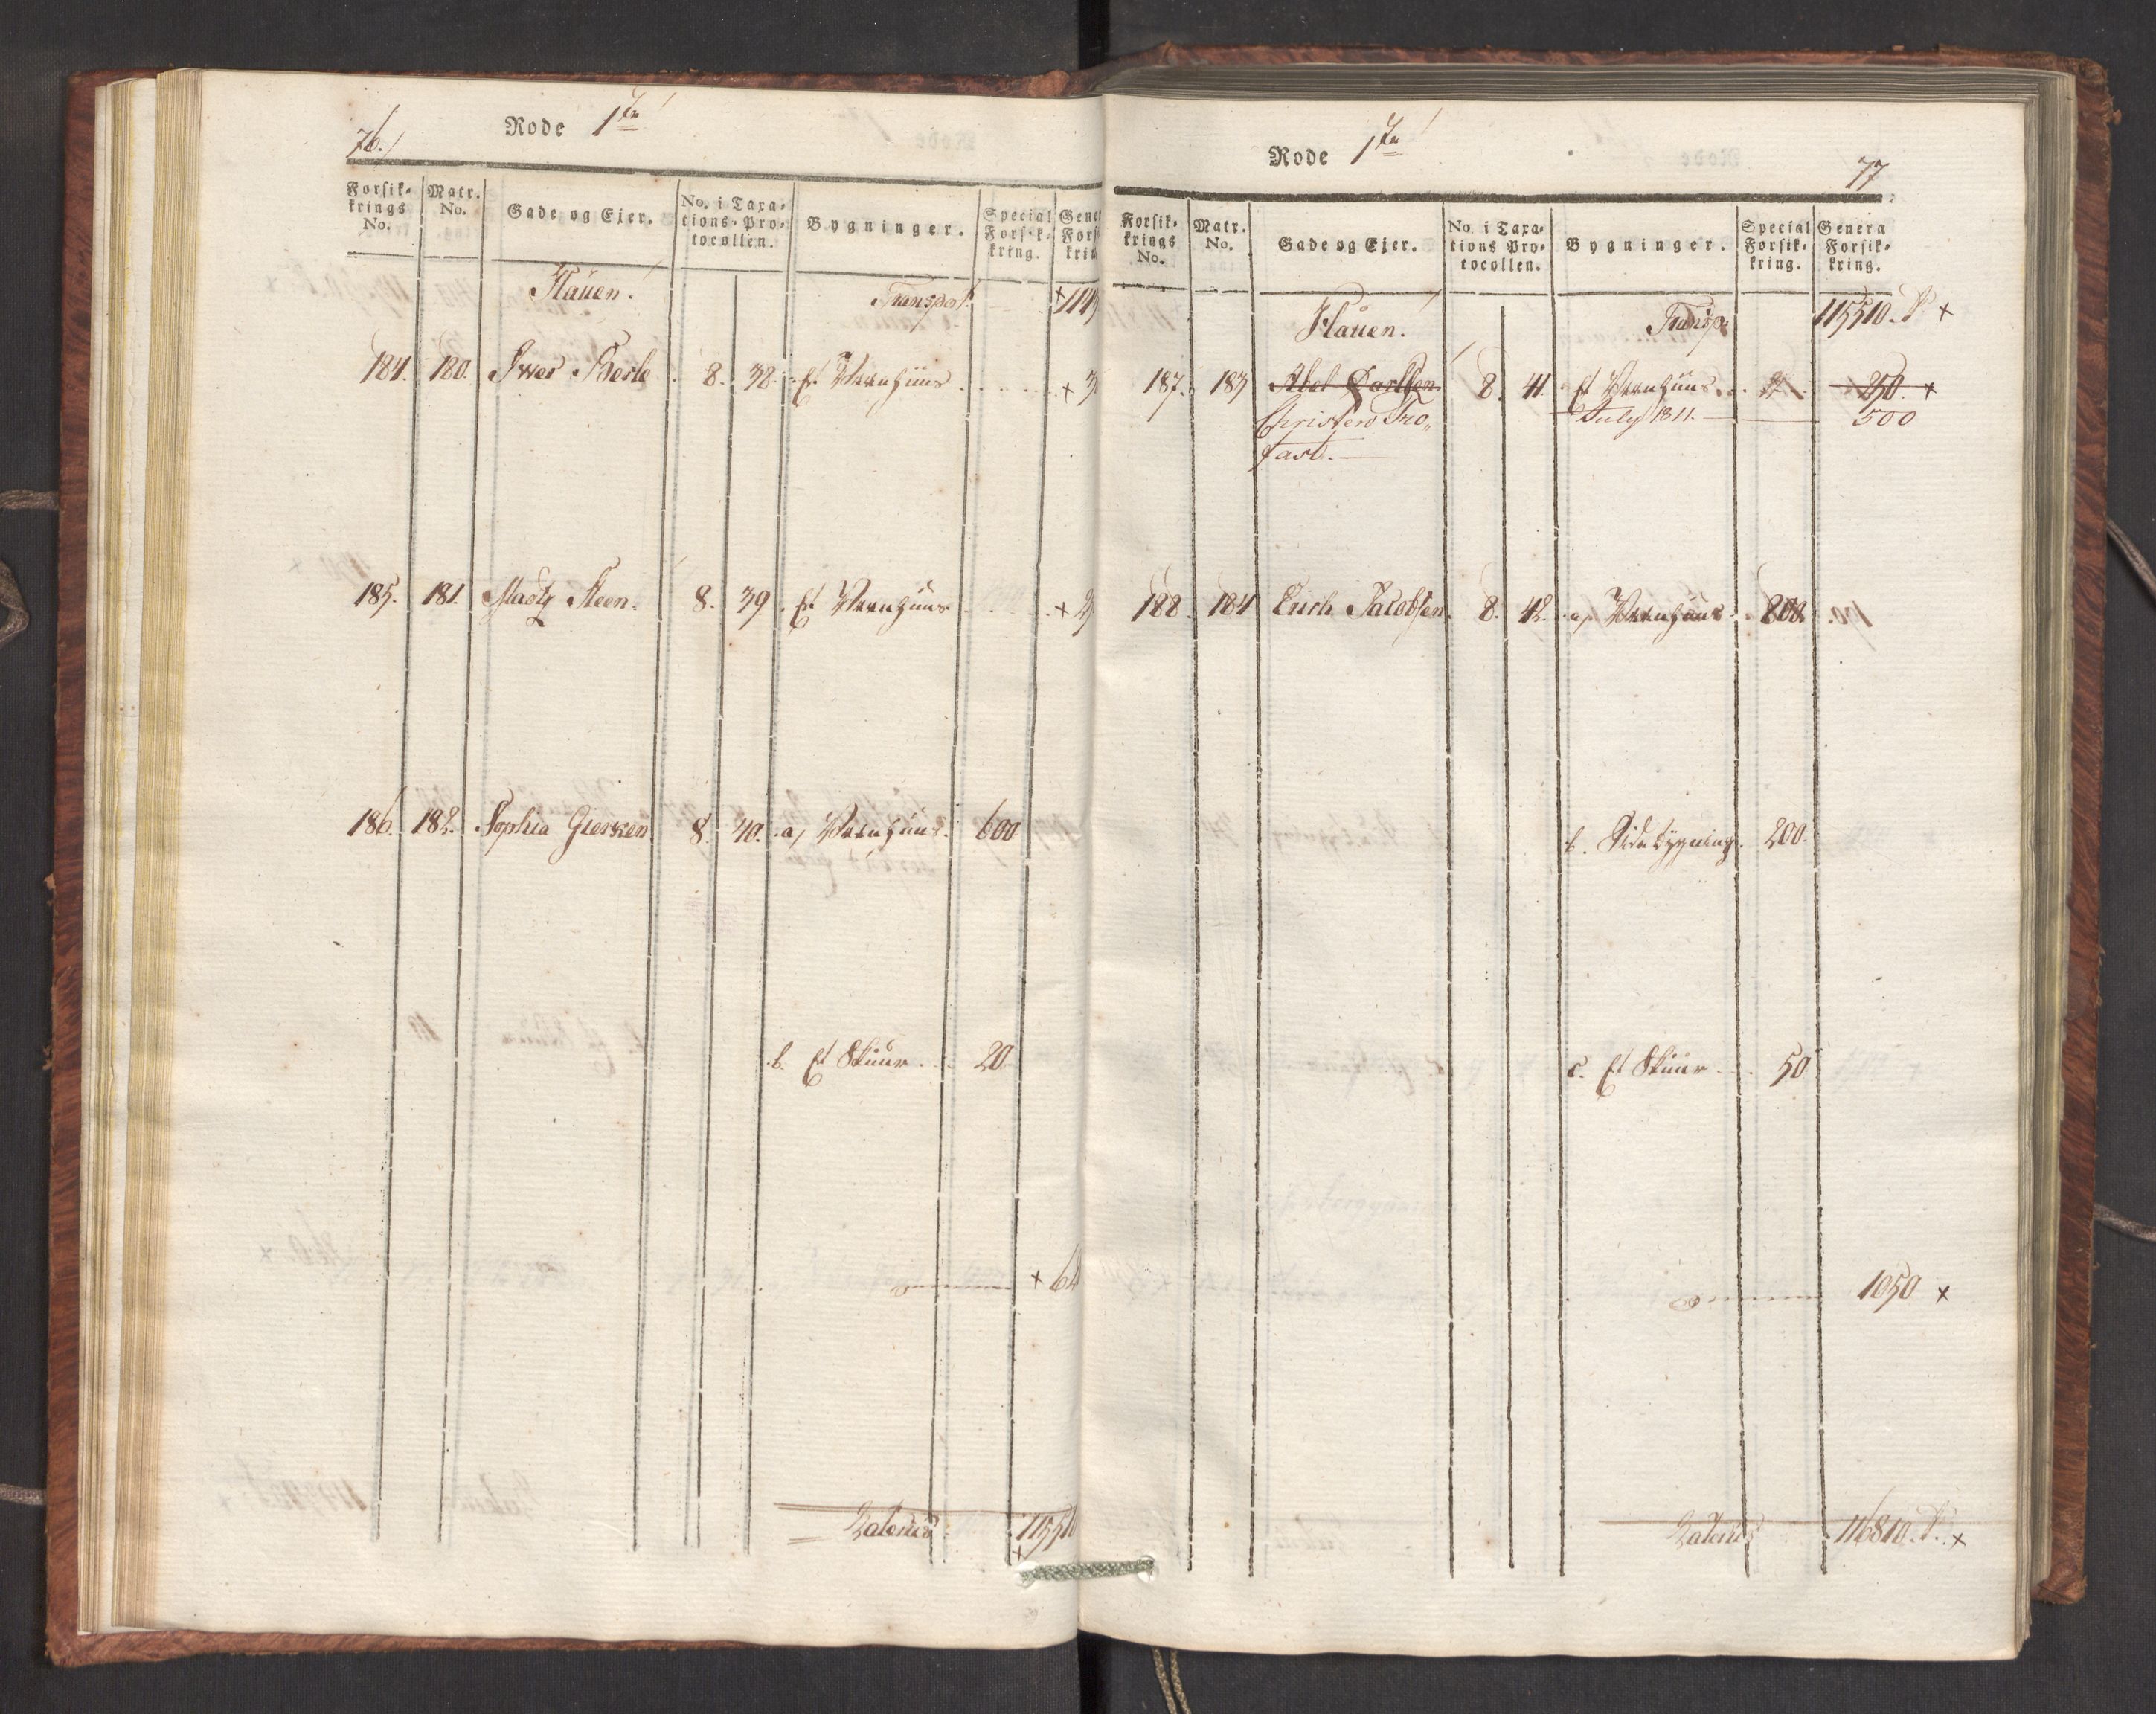 76./
Rode 1ste
Forsik-
krings
No. Matr.
No. Gade og Ejer. No. i Taxa-
tions-Pro-
tocollen. Bygninger. Special
Forsik-
kring. Gene
Fors
krin
Hauen. Transport
184. 180. Iwer Berle 8. 38. Et Vaanhuus
185. 181. Madtz Steen. 8. 39. Et Vaanhuus
186. 182. Sophia Gierken 8. 40. a, Vaanhuus. 600
b. Et Skuur. 20.
+ 64
Lateris 11551
Rode 1ste
77
Forsik-
krings
No. Matr.
No. Gade og Ejer. No. i Taxa-
tions Pro-
tocollen. Bygninger. Special
Forsik-
kring. Genera
Forsik-
kring.
Hauen. Transp. 115510. +
187. 183 Abel Carlsen 8. 41. Et Vaanhuus. 250. +
Christen Tro„ July 1811. 500
fast.
188. 184 Erich Jacobsen. 8. 42. a, Vaanhuus 800.
b. Sidebygning. 200.
c. Et Skuur 50
1050 +
Lateris 116810. +